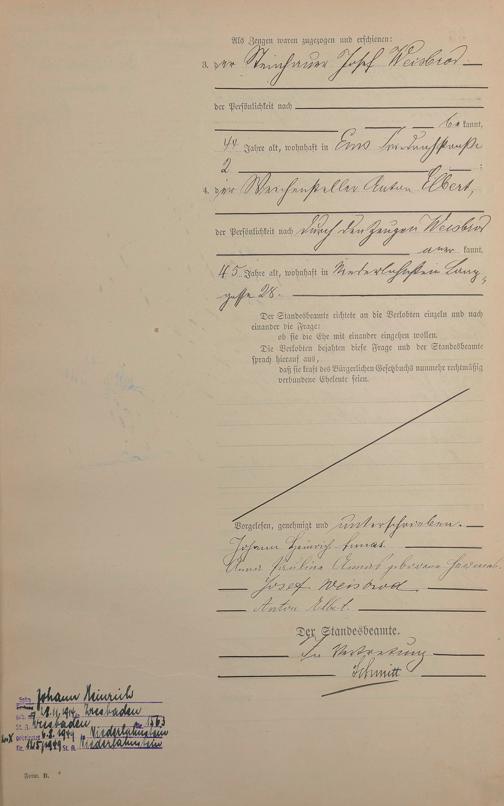 Als Zeugen waren zugezogen und erschienen:
3. der Steinhauer Josef Weisbrod
der Persönlichkeit nach
be kannt,
44 Jahre alt, wohnhaft in Ems
2.
4. der Weichensteller Anton Elbert,
der Persönlichkeit nach durch den Zeugen Weisbrod
aner kannt,
45 Jahre alt, wohnhaft in Niederlahnstein Lang-
gasse 28.
Der Standesbeamte richtete an die Verlobten einzeln und nach
einander die Frage:
ob sie die Ehe mit einander eingehen wollen.
Die Verlobten bejahten diese Frage und der Standesbeamte
sprach hierauf aus,
daß sie kraft des Bürgerlichen Gesetzbuchs nunmehr rechtmäßig
verbundene Eheleute seien.
Vorgelesen, genehmigt und unterschrieben.
Johann Heinrich
Anna Paulina geborene
Josef Weisbrod
Anton Elbert
Der Standesbeamte.
In Vertretung
Schmitt
Johann Heinrich
Wiesbaden
Wiesbaden 1563
6.2.1949 Niederlahnstein
Nr. St. A. Niederlahnstein
Form. B.